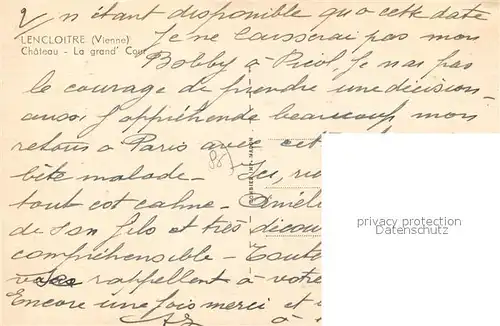 n étant disponible qu'a cette date
LENCLOITRE (Vienne)
Château - La grand' Cour
Je ne laisserai pas mon
Bobby a Picol. Je n'as pas
le courage de prendre une décision
aussi j'appréhende beaucoup mon
retour a Paris avec cet
bête malade - Ici,
tout est calme - Améli
de son filo et très décou
compréhensible - Toute
rappellent à votre
Encore une fois merci et
à
privacy protection
Datenschutz